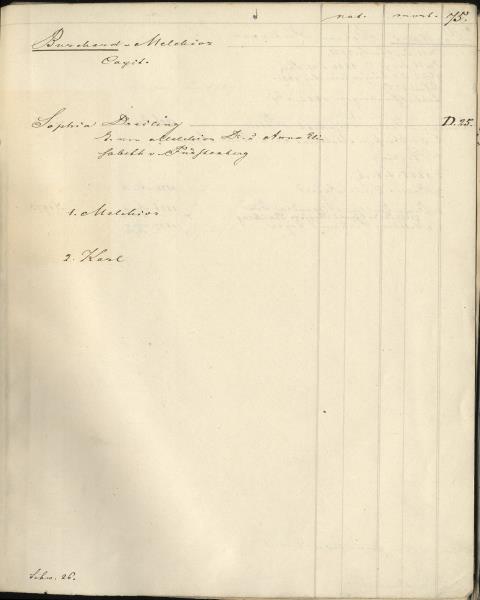 nat. mort. 75.
Burchard - Melchior
Capit.
Sophia Dreiling D. 25.
T. von Melchior Dr. u. Anna Eli-
sabeth v. Fürstenberg
1. Melchior
2. Karl
Schw. 26.